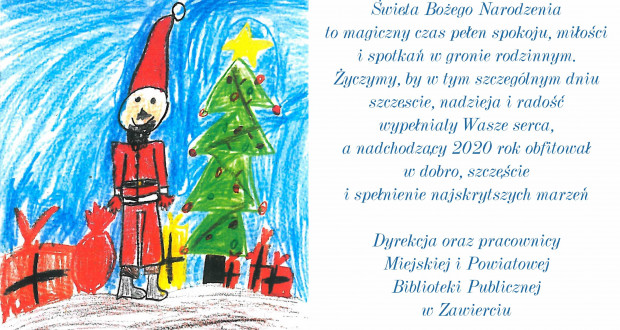 Święta Bożego Narodzenia
to magiczny czas pełen spokoju, miłości
i spotkań w gronie rodzinnym.
Życzymy, by w tym szczególnym dniu
szczescie, nadzieja i radość
wypełniały Wasze serca,
a nadchodzący 2020 rok obfitował
w dobro, szczęście
i spełnienie najskrytszych marzeń
Dyrekcja oraz pracownicy
Miejskiej i Powiatowej
Biblioteki Publicznej
w Zawierciu